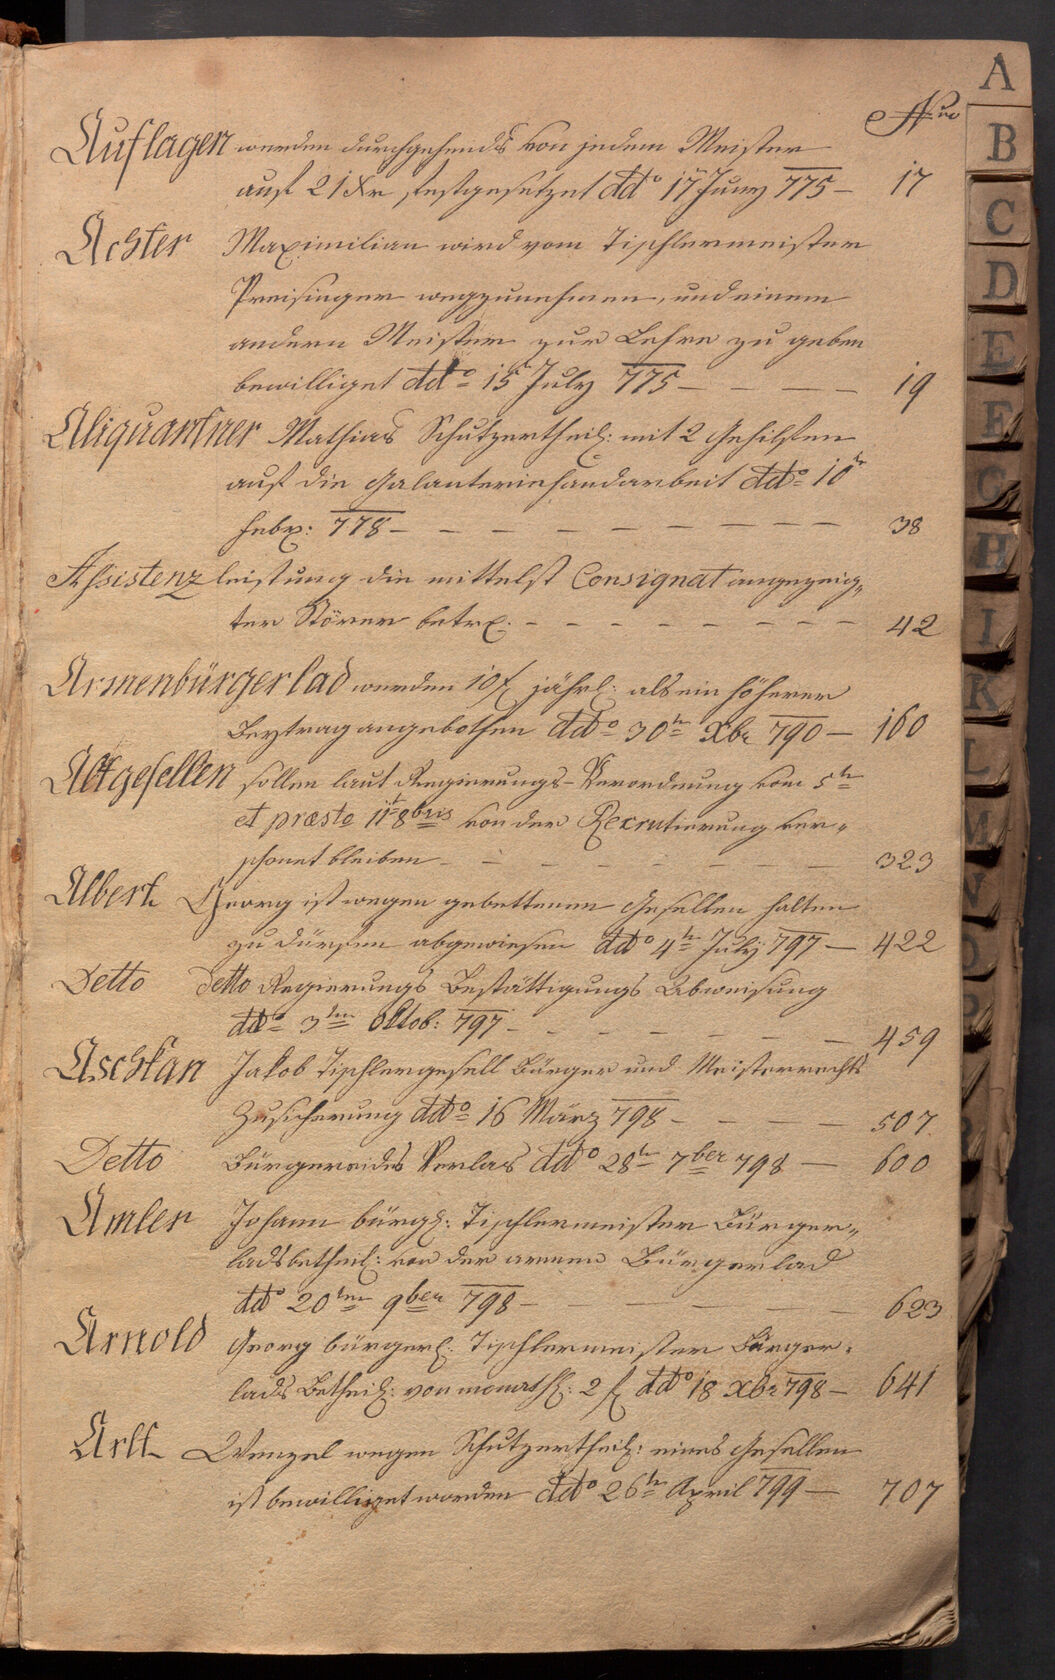 Nro
Auflagen werden durchgehends von jedem Meister
auf 21 Xr festgesetzet ddo 17n Juny 775 — 17
Achter Maximilian wird vom Tischlermeister
Preisinger wegzunehmen, und einem
andern Meister zur Lehre zu geben
bewilliget ddo 15t July 775 — — — — 19
Aliquantner Mathias Schutzertheil: mit 2 Gehilfen
auf die Galanteriehandarbeit ddo 10tn
Febr: 778 — — — — — — — — 38
Assistenzleistung die mittelst Consignat angezeig„
ter Störer betrl. — — — — — — — — 42
Armenbürgerlad werden 10 f jährl: als ein höherer
Beytrag angebothen ddo 30tn Xbr 790 — 160
Altgesellen sollen laut Regierungs-Verordnung vom 5tn
et præsto 11t 8bris von der Recrutierung ver„
schonet bleiben — — — — — — — — 323
Albert Georg ist wegen gebettenen Gesellen halten
zu dürfen abgewiesen ddo 4tn July 797 — 422
Detto Detto Regierungs Bestättigungs Abweisung
ddo 3ten Oktob: 797 — — — — — — — 459
Aschkan Jakob Tischlergesell Bürger und Meisterrechts
Zusicherung ddo 16 März 798 — — — — 507
Detto Bürgereides Verlas ddo 28tn 7ber 798 — 600
Amler Johann bürgl: Tischlermeister Bürger„
ladsbetheil: von der armen Bürgerlad
ddo 20ten 9ber 798 — — — — — — 623
Arnold Georg bürgerl: Tischlermeister Bürger„
lads Betheil: von monathl: 2 f ddo 18 Xbr 798 — 641
Arlt Wenzel wegen Schutzertheil: eines Gesellen
ist bewilliget worden ddo 26tn April 799 — 707
A
B
C
D
E
F
G
H
I
K
L
M
N
O
P